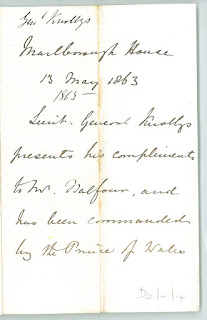 Genl Knollys
Marlborough House
13 May 1863
1863
Lieut. General Knollys
presents his compliments
to Mr. Balfour, and
has been commanded
by the Prince of Wales